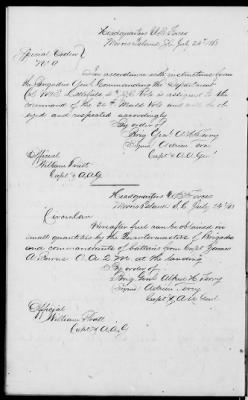 Headquarters U.S. Forces
Morris Island, S.C. July 24th 63
Special Orders
No
In accordance with instructions from
the Brigadier Genl Commanding the Department
Col is assigned to the
command of the 24th Mass Vols and will be
obeyed and respected accordingly
By order of
Brig Genl A. H. Terry
Signed Adrian Terry
Capt & A.A. Genl
Official
William
Capt & A.A.G
Headquarters U.S. Forces
Morris Island S.C. July 24th 63
Circular
Hereafter fuel can be obtained in
small quantities by the Quartermasters of Brigades
and commandants of batteries from Capt James
A. A.Q.M. at the landing
By order of
Brig Genl Alfred H. Terry
Signed Adrian Terry
Capt & A.A. Genl
Official
William
Capt & A.A.G